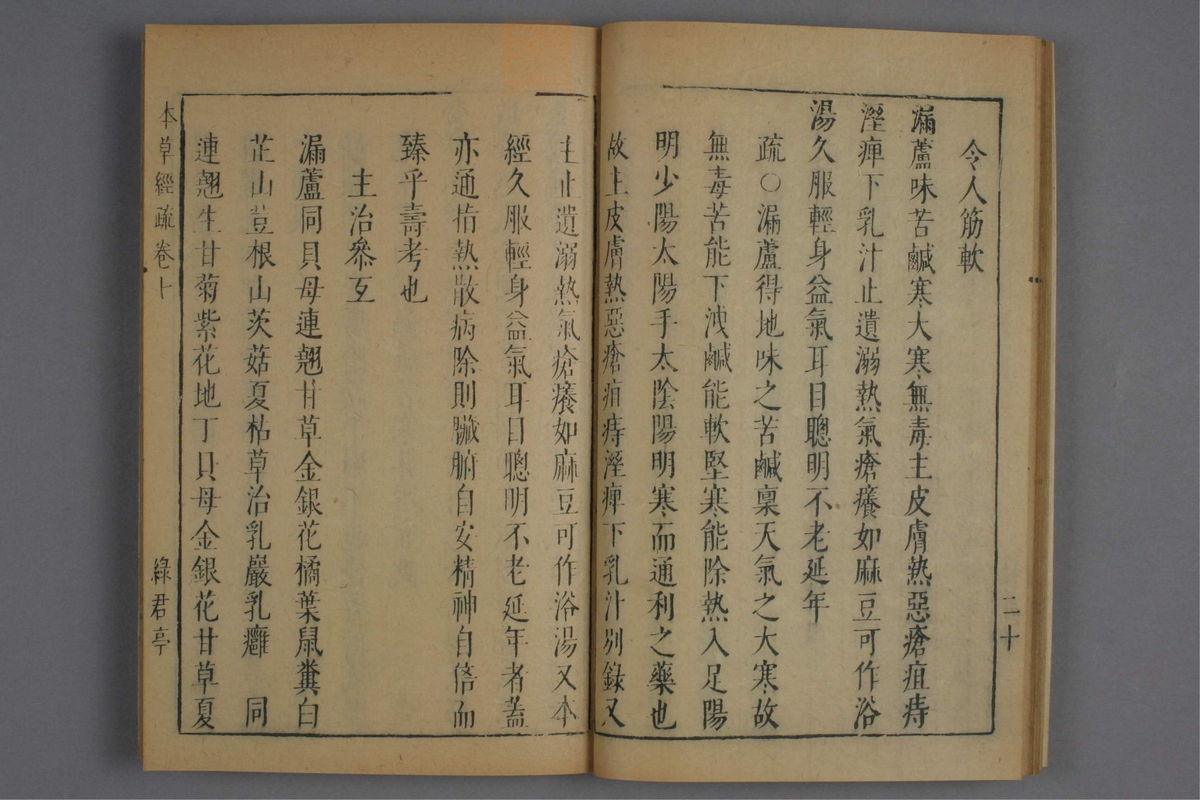 令人筋軟
漏蘆味苦鹹寒大寒無毒主皮膚熱惡瘡疽痔
溼痺下乳汁止遺溺熱氣瘡癢如麻豆可作浴
湯久服輕身益氣耳目聰明不老延年
疏○漏蘆得地味之苦鹹稟天氣之大寒故
無毒苦能下洩鹹能軟堅寒能除熱入足陽
明少陽太陽手太陰陽明寒而通利之藥也
故主皮膚熱惡瘡疽痔溼痺下乳汁別錄又
二十
主止遺溺熱氣瘡癢如麻豆可作浴湯又本
經久服輕身益氣耳目聰明不老延年者蓋
亦通指熱散病除則臟腑自安精神自倍而
臻乎壽考也
主治參互
漏蘆同貝母連翹甘草金銀花橘葉鼠糞白
芷山荳根山茨菇夏枯草治乳巖乳癰 同
連翹生甘菊紫花地丁貝母金銀花甘草夏
本草經疏卷十
綠君亭